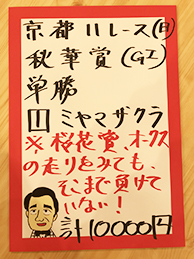 京都11レース(日)
秋華賞(GI)
単勝
1 ミヤマザクラ
※桜花賞、オークス
の走りをみても、
そこまで負けて
いない!
計10000円